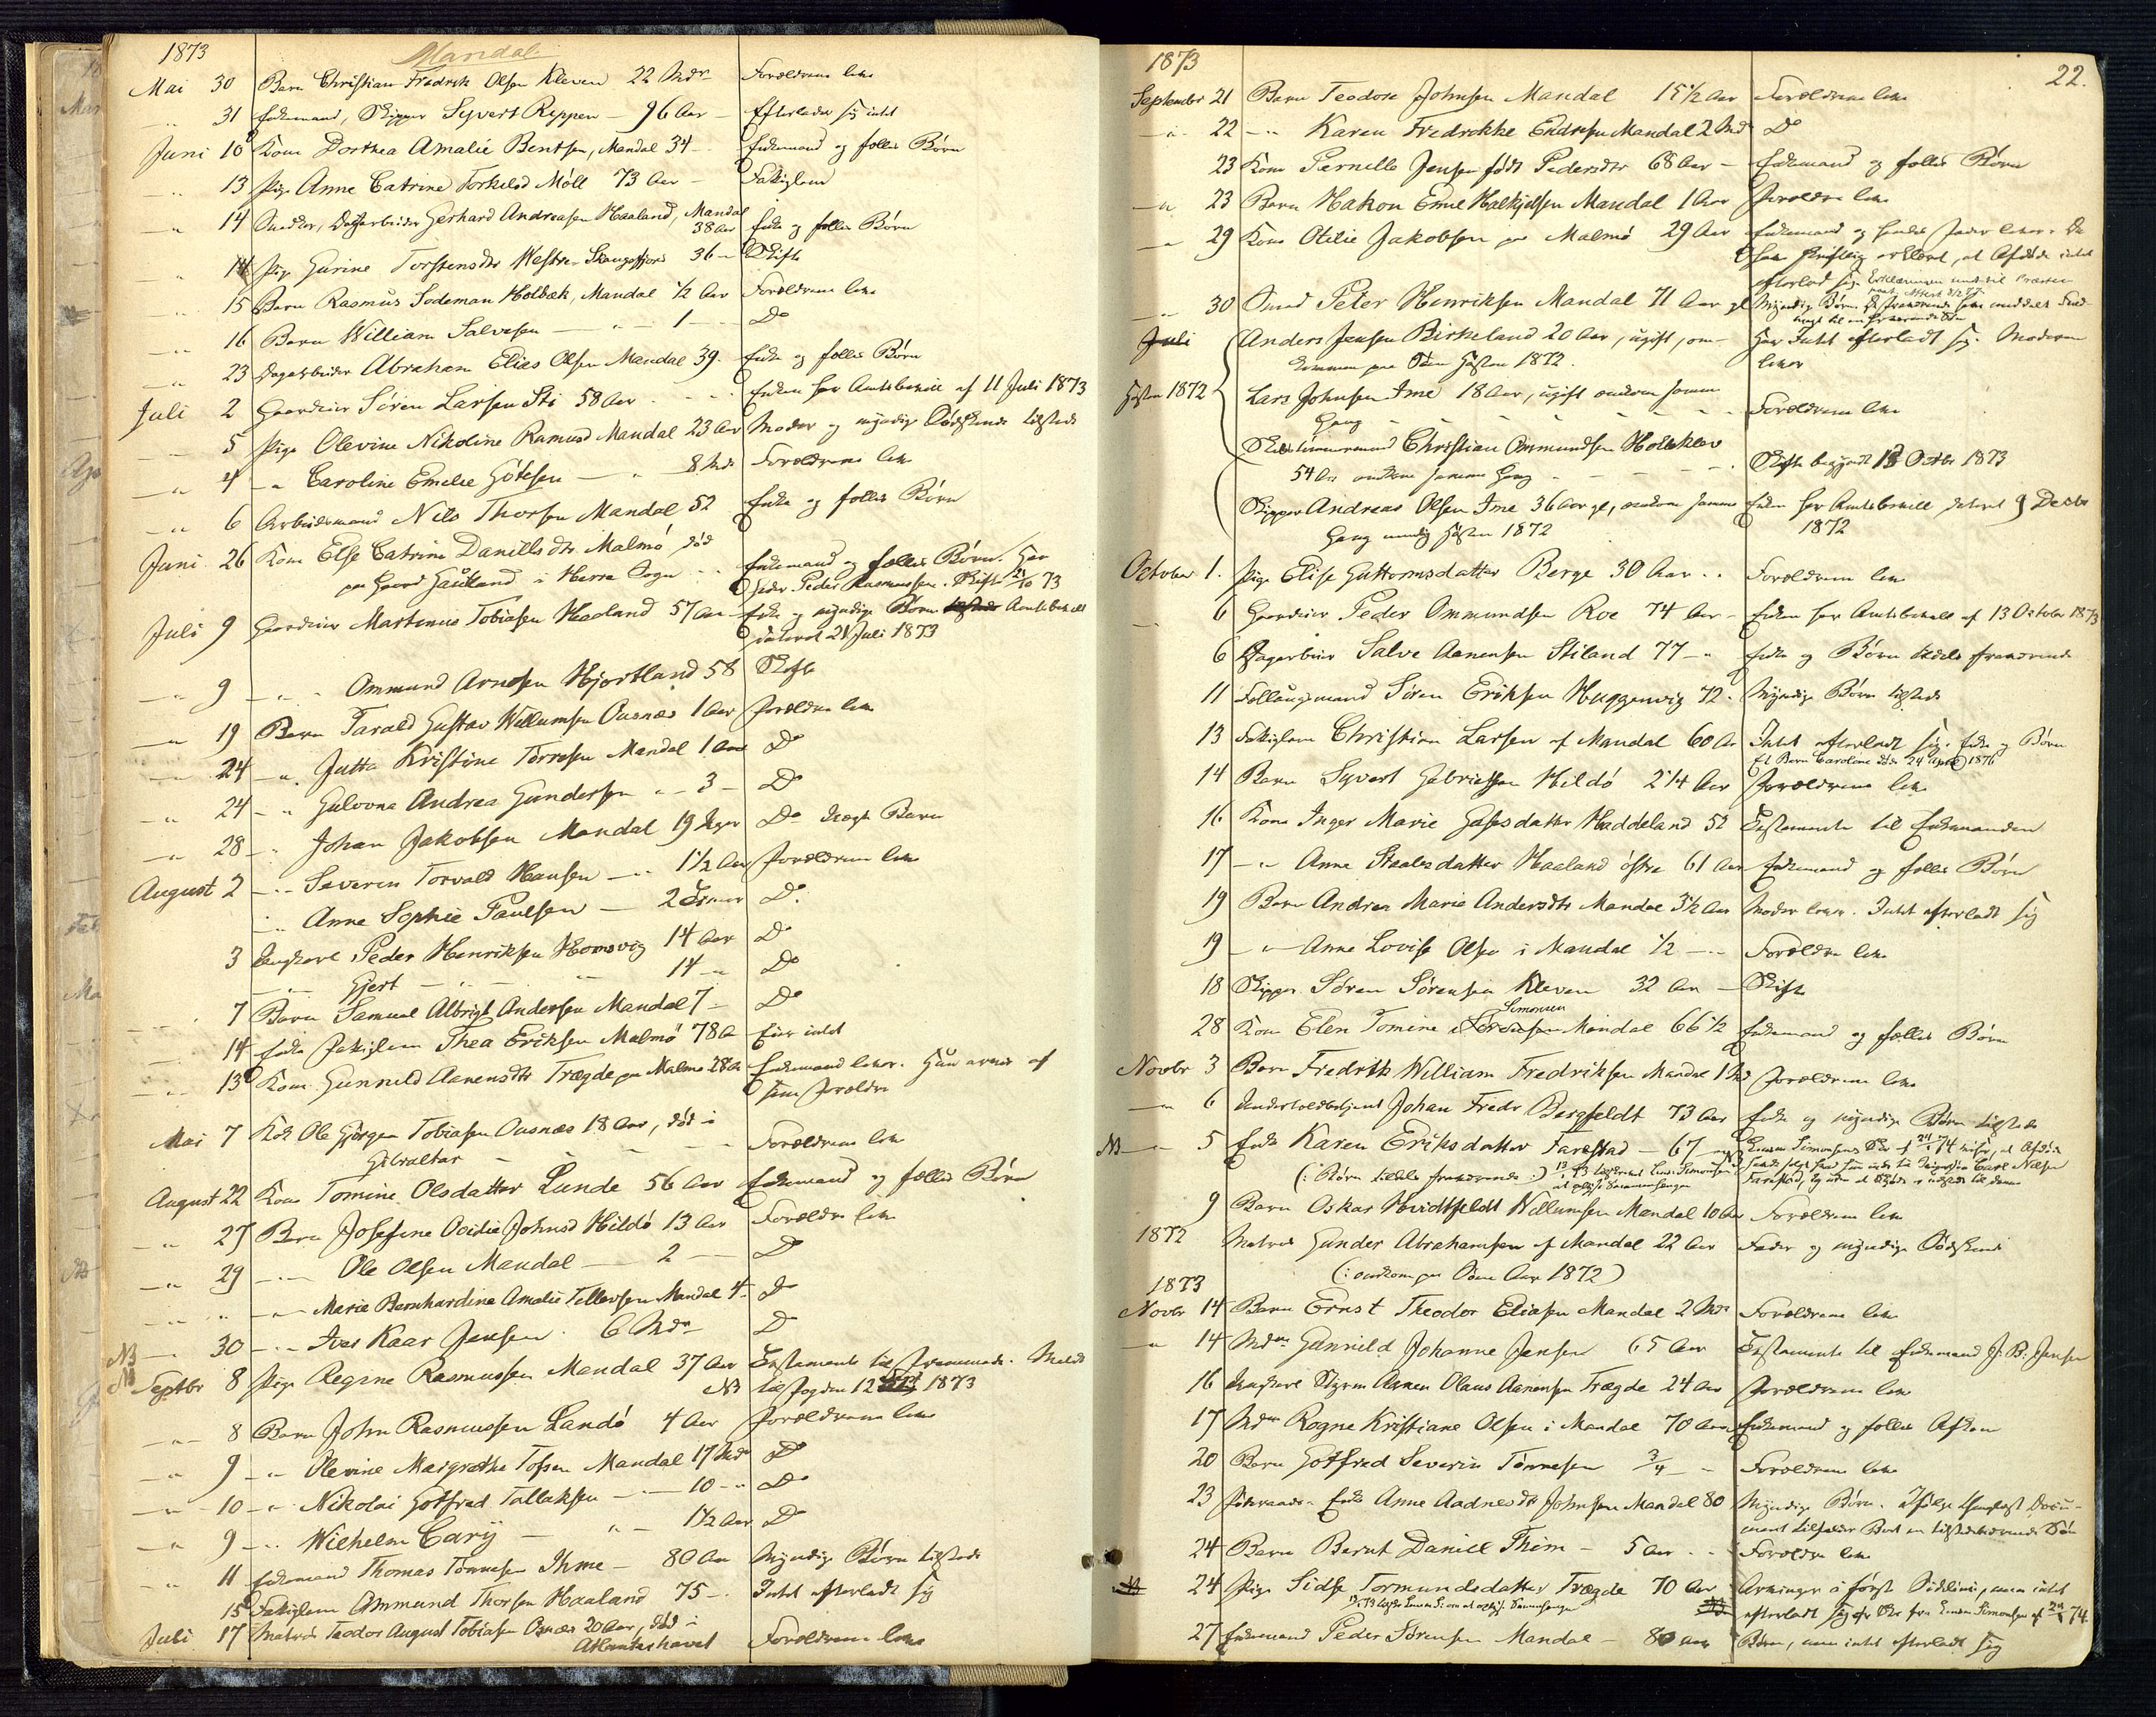 1873
Mandal
Mai 30 Barn Christian Fredrik Olsen Kleven 22 Mdr Forældrene leve
" 31 Enkemand, Skipper Syvert Reppen - 96 Aar - Efterlader sig intet
Juni 10 Kone Dorthea Amalie Bentsen, Mandal 34 - Enkemand og fælles Børn
" 13 Pige Anne Catrine Torkelsd Møll 73 Aar - Fattiglem
" 14 Snedker, Gerhard Andreasen Haaland, Mandal
38 Aar Enke og fælles Børn
" 14 Pige Gurine Torstensdtr Vestre Skaugsfjord 36 - Skifte
" 15 Barn Rasmus Sodeman Holbæk, Mandal 1/2 Aar Forældrene leve
" 16 Barn William Salvesen - " - 1 - Do
" 23 Dagarbeider Abraham Elias Olsen Mandal 39. Enke og fælles Børn
Juli 2 Gaardbruger Søren Larsen Sti 58 Aar - Enken har Amtsbevill af 11 Juli 1873
" 5 Pige Olevine Nikoline Rasmusd Mandal 23 Aar Moder og myndige Sødskende tilstede
" 4 - " Caroline Emelie Götesen - " 8 Mdr Forældrene leve
" 6 Arbeidsmand Nils Thorsen Mandal 52 Enke og fælles Børn
Juni 26 Kone Else Catrine Daniellsdtr Malmö død
paa Gaard i Herre Sogn - Enkemand og fælles Børn. Har
Fader Peder Rasmussen. Skifte 21/10 73
Juli 9 Gaardbruger Martinus Tobiasen Haaland 57 Aar - Enke og myndige Børn Amtsbevill
dateret 21 Juli 1873
" 9 - " - Ommund Arnesen Hjortland 58 Skifte
" 19 Barn Tarald Gustav Willumsen Ousnæs 1 Aar Forældre leve
" 24 - " Jutta Kristine Torresen Mandal 1 Aar Do
" 24 - " Gulovna Andrea Gundersen " - 3 - Do
" 28 - " Johan Jakobsen Mandal 19 Uger Do Barn
August 2 - " Severin Torvald Hansen - " 1 1/2 Aar Forældrene leve
" Anne Sophie Paulsen - 2 Timer Do.
3 Ungkarl Peder Henriksen Homsvig 14 Aar Do
- " Gjert - " - " 14 - " Do
" 7 Barn Samuel Albrigt Andersen Mandal 7 - Do
" 14 Enke Fattiglem Thea Eriksen Malmø 78 A Eier intet
" 13 Kone Gunnild Aanensdtr Trægde paa Malmø 28 A Enkemand lever. Hun arves af
sine Forældre
Mai 7 Kok Ole Gjørgen Tobiasen Ousnæs 18 Aar, død i
Gibraltar - - Forældrene leve
August 22 Kone Tomine Olsdatter Lunde 56 Aar Enkemand og fælles Børn
" 27 Barn Josefine Ovidie Johnsd Hildø 13 Aar Forældre leve
" 29 - " Ole Olsen Mandal - 2 - Do
" " - " Marie Bernhardine Amalie Tellevsen Mandal 4 - Do
NB - 30 - " Ivar Kaar Jensen. 6 Mdr Do
NB Septbr 8 Pige Regine Rasmussen Mandal 37 Aar Testamente til . Meldt
NB til Fogden 12 1873
" 8 Barn John Rasmussen Landø 4 Aar Forældrene leve
" 9 - " Olevine Margrethe Tofsen Mandal 17 Mdr Do
" 10 - " Nikolai Gotfred Tallaksen - " 10 - " Do
" 9 - " Wilhelm Carij - " - 1 1/2 Aar Do
" 11 Enkemand Thomas Tønnesen Ihme - 80 Aar Myndige Børn tilstede
15 Fattiglem Ommund Thorsen Haaland 75 - Intet efterladt sig
Juli 17 Matros Teodor August Tobiasen Osnæs 20 Aar, død i
Atlanterhavet Forældrene leve
1873
22.
September 21 Barn Teodore Johnsen Mandal 15 1/2 Aar Forældrene leve
" 22 - " Karen Fredrikke Endresen Mandal 2 Mdr Do
23 Kone Pernille Jensen født Pedersdtr 68 Aar - Enkemand og fælles Børn
" 23 Barn Hakon Emil Halkjelsen Mandal 1 Aar Forældre leve
" 29 Kone Otilie Jakobsen paa Malmø 29 Aar Enkemand og hendes Fader lever. De
har skriftlig erklæret, at Afdøde intet
efterlod sig. Erklæringen
" 30 Smed Peter Henriksen Mandal 71 Aar gl Myndige Børn.
Juli Anders Jensen Birkeland 20 Aar, ugift, om-
kommen paa Søen Høsten 1872. Har Intet efterladt sig. Moderen
lever
Høsten 1872 Lars Johnsen Ime 18 Aar, ugift omkom samme
Gang - Forældrene leve
Skibstømmermand Christian Ommundsen Holsklev
54 Aar omkom samme Gang - Skifte begyndt 13 Octbr 1873
Skipper Andreas Olsen Ime 36 Aar gl, omkom samme Enken har Amtsbevill dateret 9 Decbr
Gang Høsten 1872 1872
October 1. Pige Elise Guttormsdatter Berge 30 Aar . . Forældrene leve
6 Gaardbruger Peder Ommundsen Roe 74 Aar - Enken har Amtsbevill af 13 October 1873
6 Salve Aanensen Stiland 77 - " Enke og Børn tildels fraværende
11 Follaugsmand Søren Eriksen Huggenvig 72. Myndige Børn tilstede
13 Fattiglem Christian Larsen af Mandal 60 Aar Intet efterladt sig. Enke og Børn
Et Barn Caroline døde 24 April 1876
14 Barn Syvert Gabrielsen Hildø 2 1/4 Aar Forældrene leve
16 Kone Inger Marie Gabrielsdatter Haddeland 52 Testamente til Enkemanden
17 - " Anne Staalesdatter Haaland østre 61 Aar Enkemand og fælles Børn
19 Barn Andrea Marie Andersdtr Mandal 3 1/2 Aar Moder lever. Intet efterladt sig
19 - " Anne Lovise Olsen i Mandal 1/2 - " Forældre leve
18 Skipper Søren Sørensen Kleven 32 Aar - Skifte
Simonsen
28 Kone Elen Tomine Sørensen Mandal 66 1/2 Enkemand og fælles Børn
Novbr 3 Barn Fredrik William Fredriksen Mandal 1 Md Forældrene leve
" 6 Undertoldbetjent Johan Fredr Bergfeldt 73 Aar Enke og myndige Børn tilstede
NB - " 5 Enke Karen Eriksdatter Farestad - 67 -
(: Børn tildels fraværende :)
9 Barn Oskar Hvidtfeldt Willumsen Mandal 10 Aar Forældrene leve
1872 Matros Gunder Abrahamsen af Mandal 22 Aar Fader og myndige Sødskende
(: omkom paa Søen Aar 1872)
1873
Novbr 14 Barn Ernst Theodor Eliasen Mandal 2 Mdr Forældrene leve
" 14 Mdm Gunnild Johanne Jensen 65 Aar Testamente til Enkemand J. B. Jensen
16 Ungkarl Styrm Aanen Olaus Aanensen Trægde 24 Aar Forældrene leve
17 Mdm Rogne Kristiane Olsen i Mandal 70 Aar Enkemand og fælles Afkom
20 Barn Gotfred Severin Tønnesen 3/4 - " Forældrene leve
23 Enke Anne Aadnesdtr Johnsen Mandal 80 Myndige Børn. Ifølge Docu-
ment tilfalder Boet en tilstedeværende Søn
24 Barn Bernt Daniel Thim - 5 Aar - - Forældre leve
24 Pige Sidse Tormundsdatter Trægde 70 Aar Arvinger i første Sidelinie, men intet
efterladt sig efter Skr fra Simonsen af 74
27 Enkemand Peder Sørensen Mandal - 80 Aar Børn, men intet efterladt sig